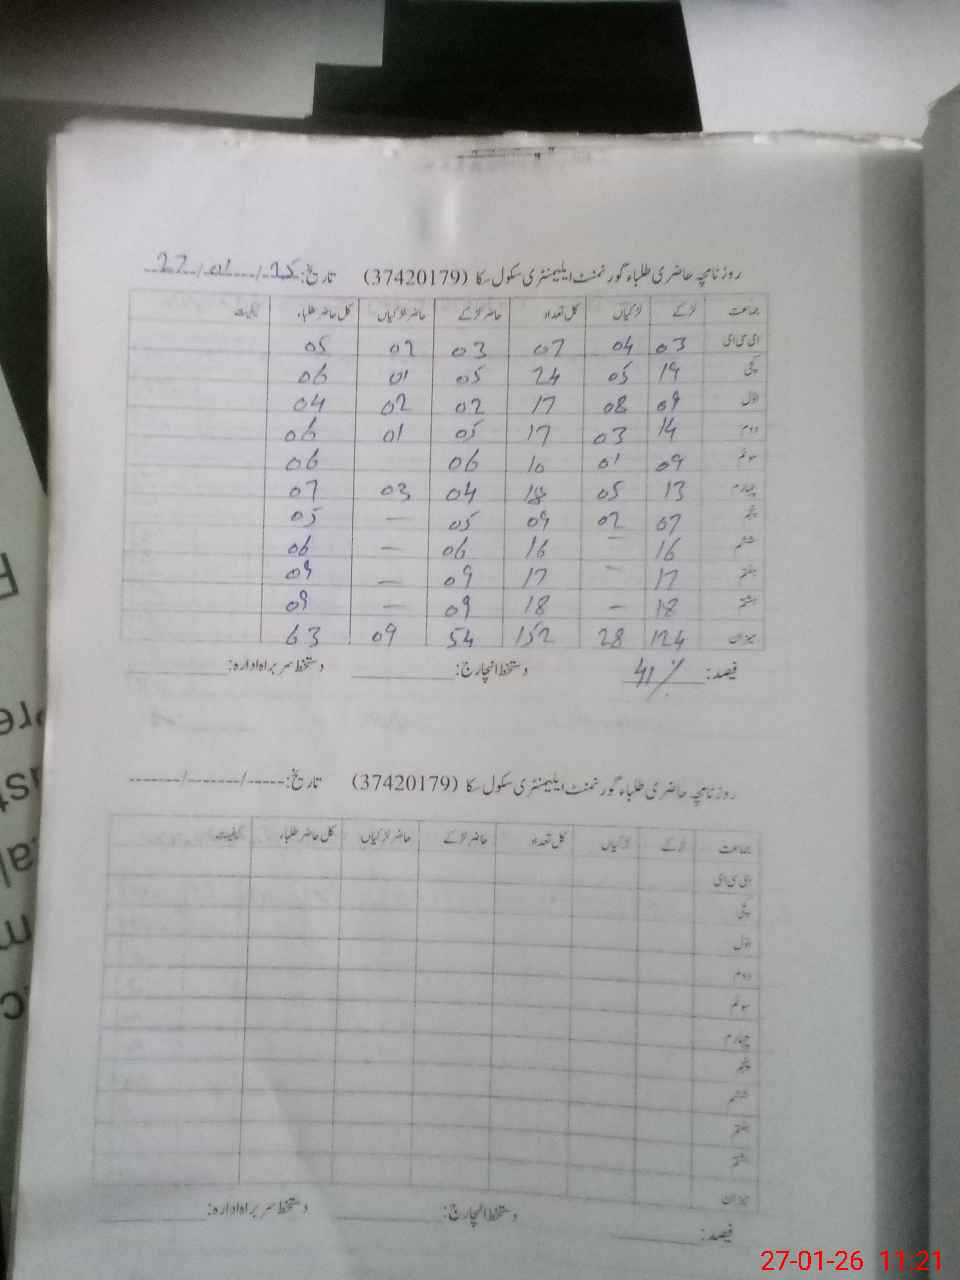 روزنامچہ حاضری طلباء گورنمنٹ ایلیمنٹری سکول سکا (37420179) تاریخ: 27/01/
جماعت لڑکے لڑکیاں کل تعداد حاضر لڑکے حاضر لڑکیاں کل حاضر طلباء کیفیت
ای سی ای 03 04 07 03 02 05
کچی 19 05 24 05 01 06
اول 09 08 17 02 02 04
دوم 14 03 17 05 01 06
سوئم 09 01 10 06 06
چہارم 13 05 18 04 03 07
پنجم 07 02 09 05 — 05
ششم 16 — 16 06 — 06
ہفتم 17 — 17 09 — 09
ہشتم 18 — 18 09 — 09
میزان 124 28 152 54 09 63
فیصد: 41% دستخط انچارج: دستخط سربراہ ادارہ:
روزنامچہ حاضری طلباء گورنمنٹ ایلیمنٹری سکول سکا (37420179) تاریخ:-----/-------/-------
جماعت لڑکے لڑکیاں کل تعداد حاضر لڑکے حاضر لڑکیاں کل حاضر طلباء کیفیت
ای سی ای
کچی
اول
دوم
سوئم
چہارم
پنجم
ششم
ہفتم
ہشتم
میزان
فیصد: دستخط انچارج: دستخط سربراہ ادارہ:
27-01-26 11:21